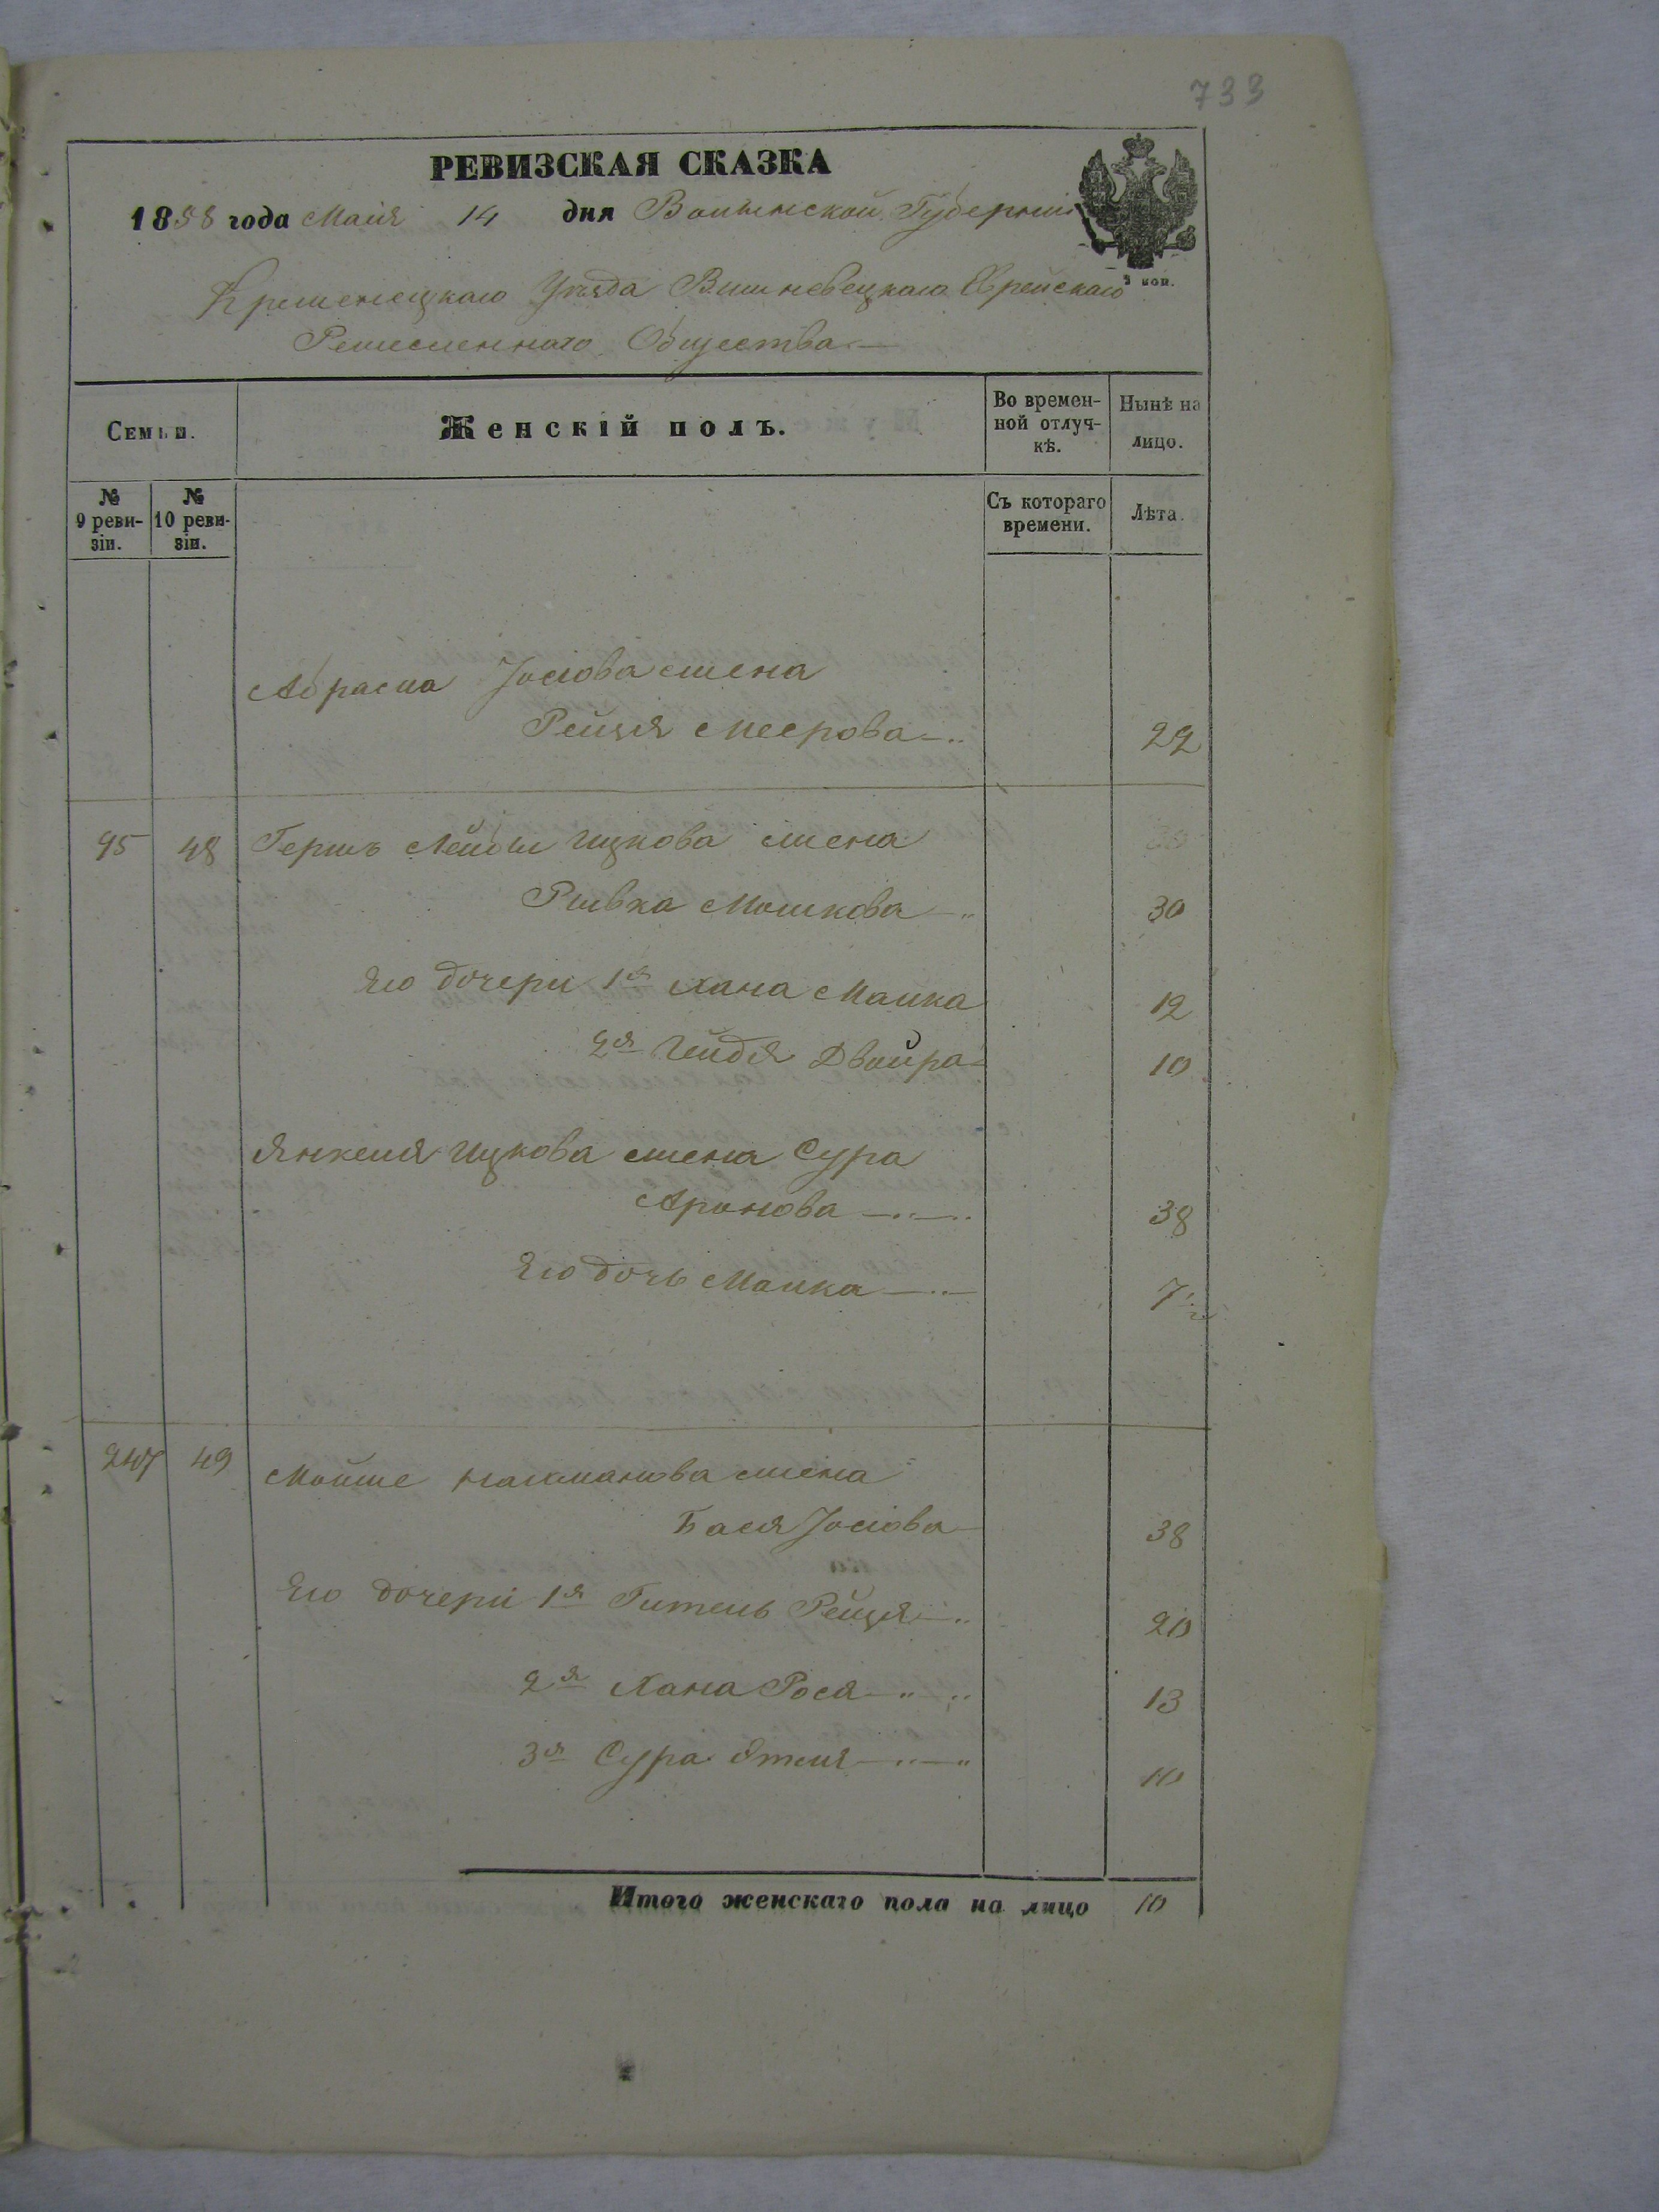 733
РЕВИЗСКАЯ СКАЗКА
1858 года Маія 14 дня Волынской Губерніи
3 коп.
Кременецкаго Уѣзда Вишневецкаго Еврейскаго
Ремесленнаго Общества
Семьи.
Женскій полъ.
Во времен-
ной отлуч-
кѣ.
Нынѣ на
лицо.
№
9 реви-
зіи.
№
10 реви-
зіи.
Съ котораго
времени.
Лѣта.
Абрама Іосіова жена
Рейзя Меерова 22
95 48 Гершъ Лейбы Ицкова жена
Ривка Мошкова 30
Его дочери 1я Хана Малка 12
2я Гейдя Двойра 10
Янкеля Ицкова жена Сура
Аронова 38
Его дочь Малка 7 1/2
247 49 Мойше Нахманова жена
Бася Іосіова 38
Его дочери 1я Гитель Рейзя 20
2я Хана Рося 13
3я Сура Этля 10
Итого женскаго пола на лицо 10